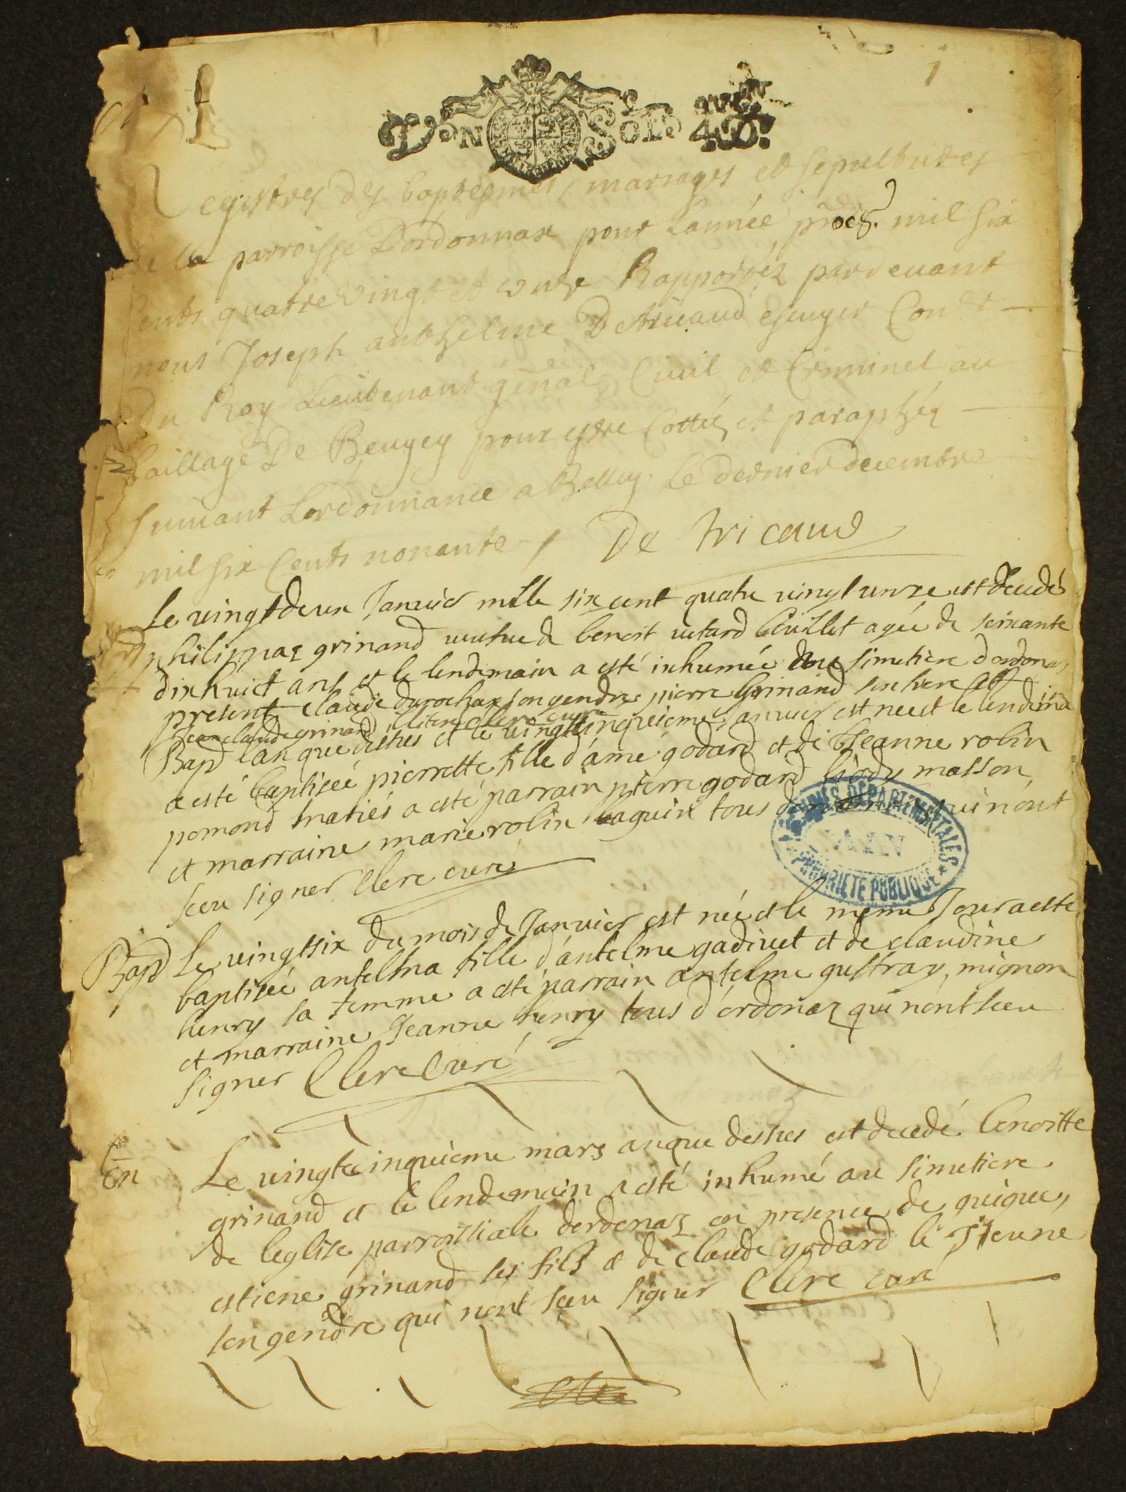 1
Lyon Sols 4 D.
Registres des baptesmes mariages et sepultures
de la parroisse Dordonnax pour Lannée mil six
cents quatre vingt et onze Rapportez pardevant
nous Joseph anthelme De tricaud escuyer Conr
du Roy Lieutenant genal Civil et Criminel au
baillage De Beugey pour estre Cottés et paraphés
suivant Lordonnance a Belley le dernier decembre
mil six Cents nonante / De tricaud
le vingtdeux Janvier mille six cent quatre vingt unze est decedé
philippaz grinand veufve de benoit agée de soixante
dixhuict ans et le lendemain a esté inhumée simetiere d'ordonaz
present claude durochax son gendre pierre grinand son frere et
Jean claude grinand Clerc curé
Bapt L'an que desus et le vingtcinquieme Janvier est nee et le lendemain
a esté baptiseé pierrette fille d'ame godard et de Jeanne robin
pomond mariés a esté parrain pierre godard masson
et marraine marie robin tous qui n'ont
sceu signer Clerc curé
Bapt Le vingtsix du mois de Janvier est née et le meme Jour a esté
baptiseé anthelma fille d'antelme gadivet et de claudine
henry sa femme a esté parrain antelme mignon
et marraine Jeanne henry tous d'ordonaz qui n'ont sceu
signer Clerc Curé
En Le vingtcinquieme mars anque desus est decedé benoitte
grinand et le lendemain a esté inhumé au simetiere
de leglise parroissiale dordonaz en presence de
estiene grinand ses fils & de claude godard le Jeune
son gendre qui n'ont sceu signer Clerc curé
ARCHIVES DEPARTEMENTALES
AIN
PROPRIETE PUBLIQUE